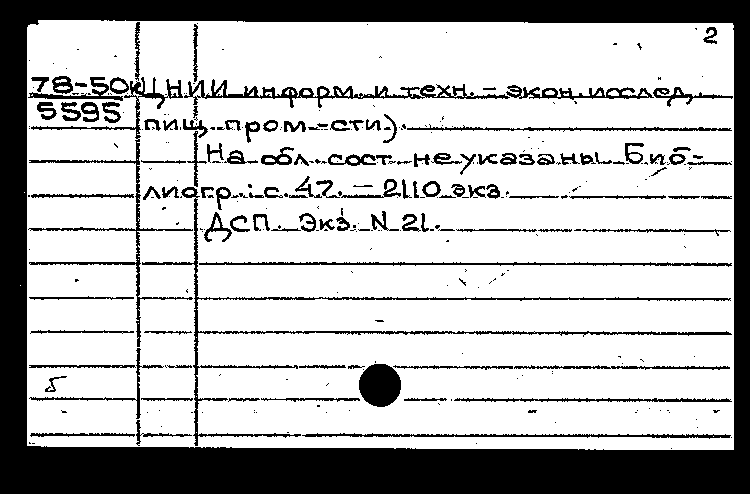 2
78-50к ЦНИИ информ. и техн. - экон. исслед.
5595
пищ. пром-сти).
На обл. сост. не указаны. Биб-
лиогр.: с. 47. - 2110 экз.
ДСП. Экз. N 21.
5